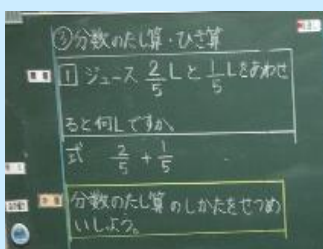 ③分数のたし算・ひき算
1 ジュース 2/5 Lと 1/5 Lをあわせ
ると何Lですか。
式 2/5 + 1/5
分数のたし算のしかたをせつめ
いしよう。